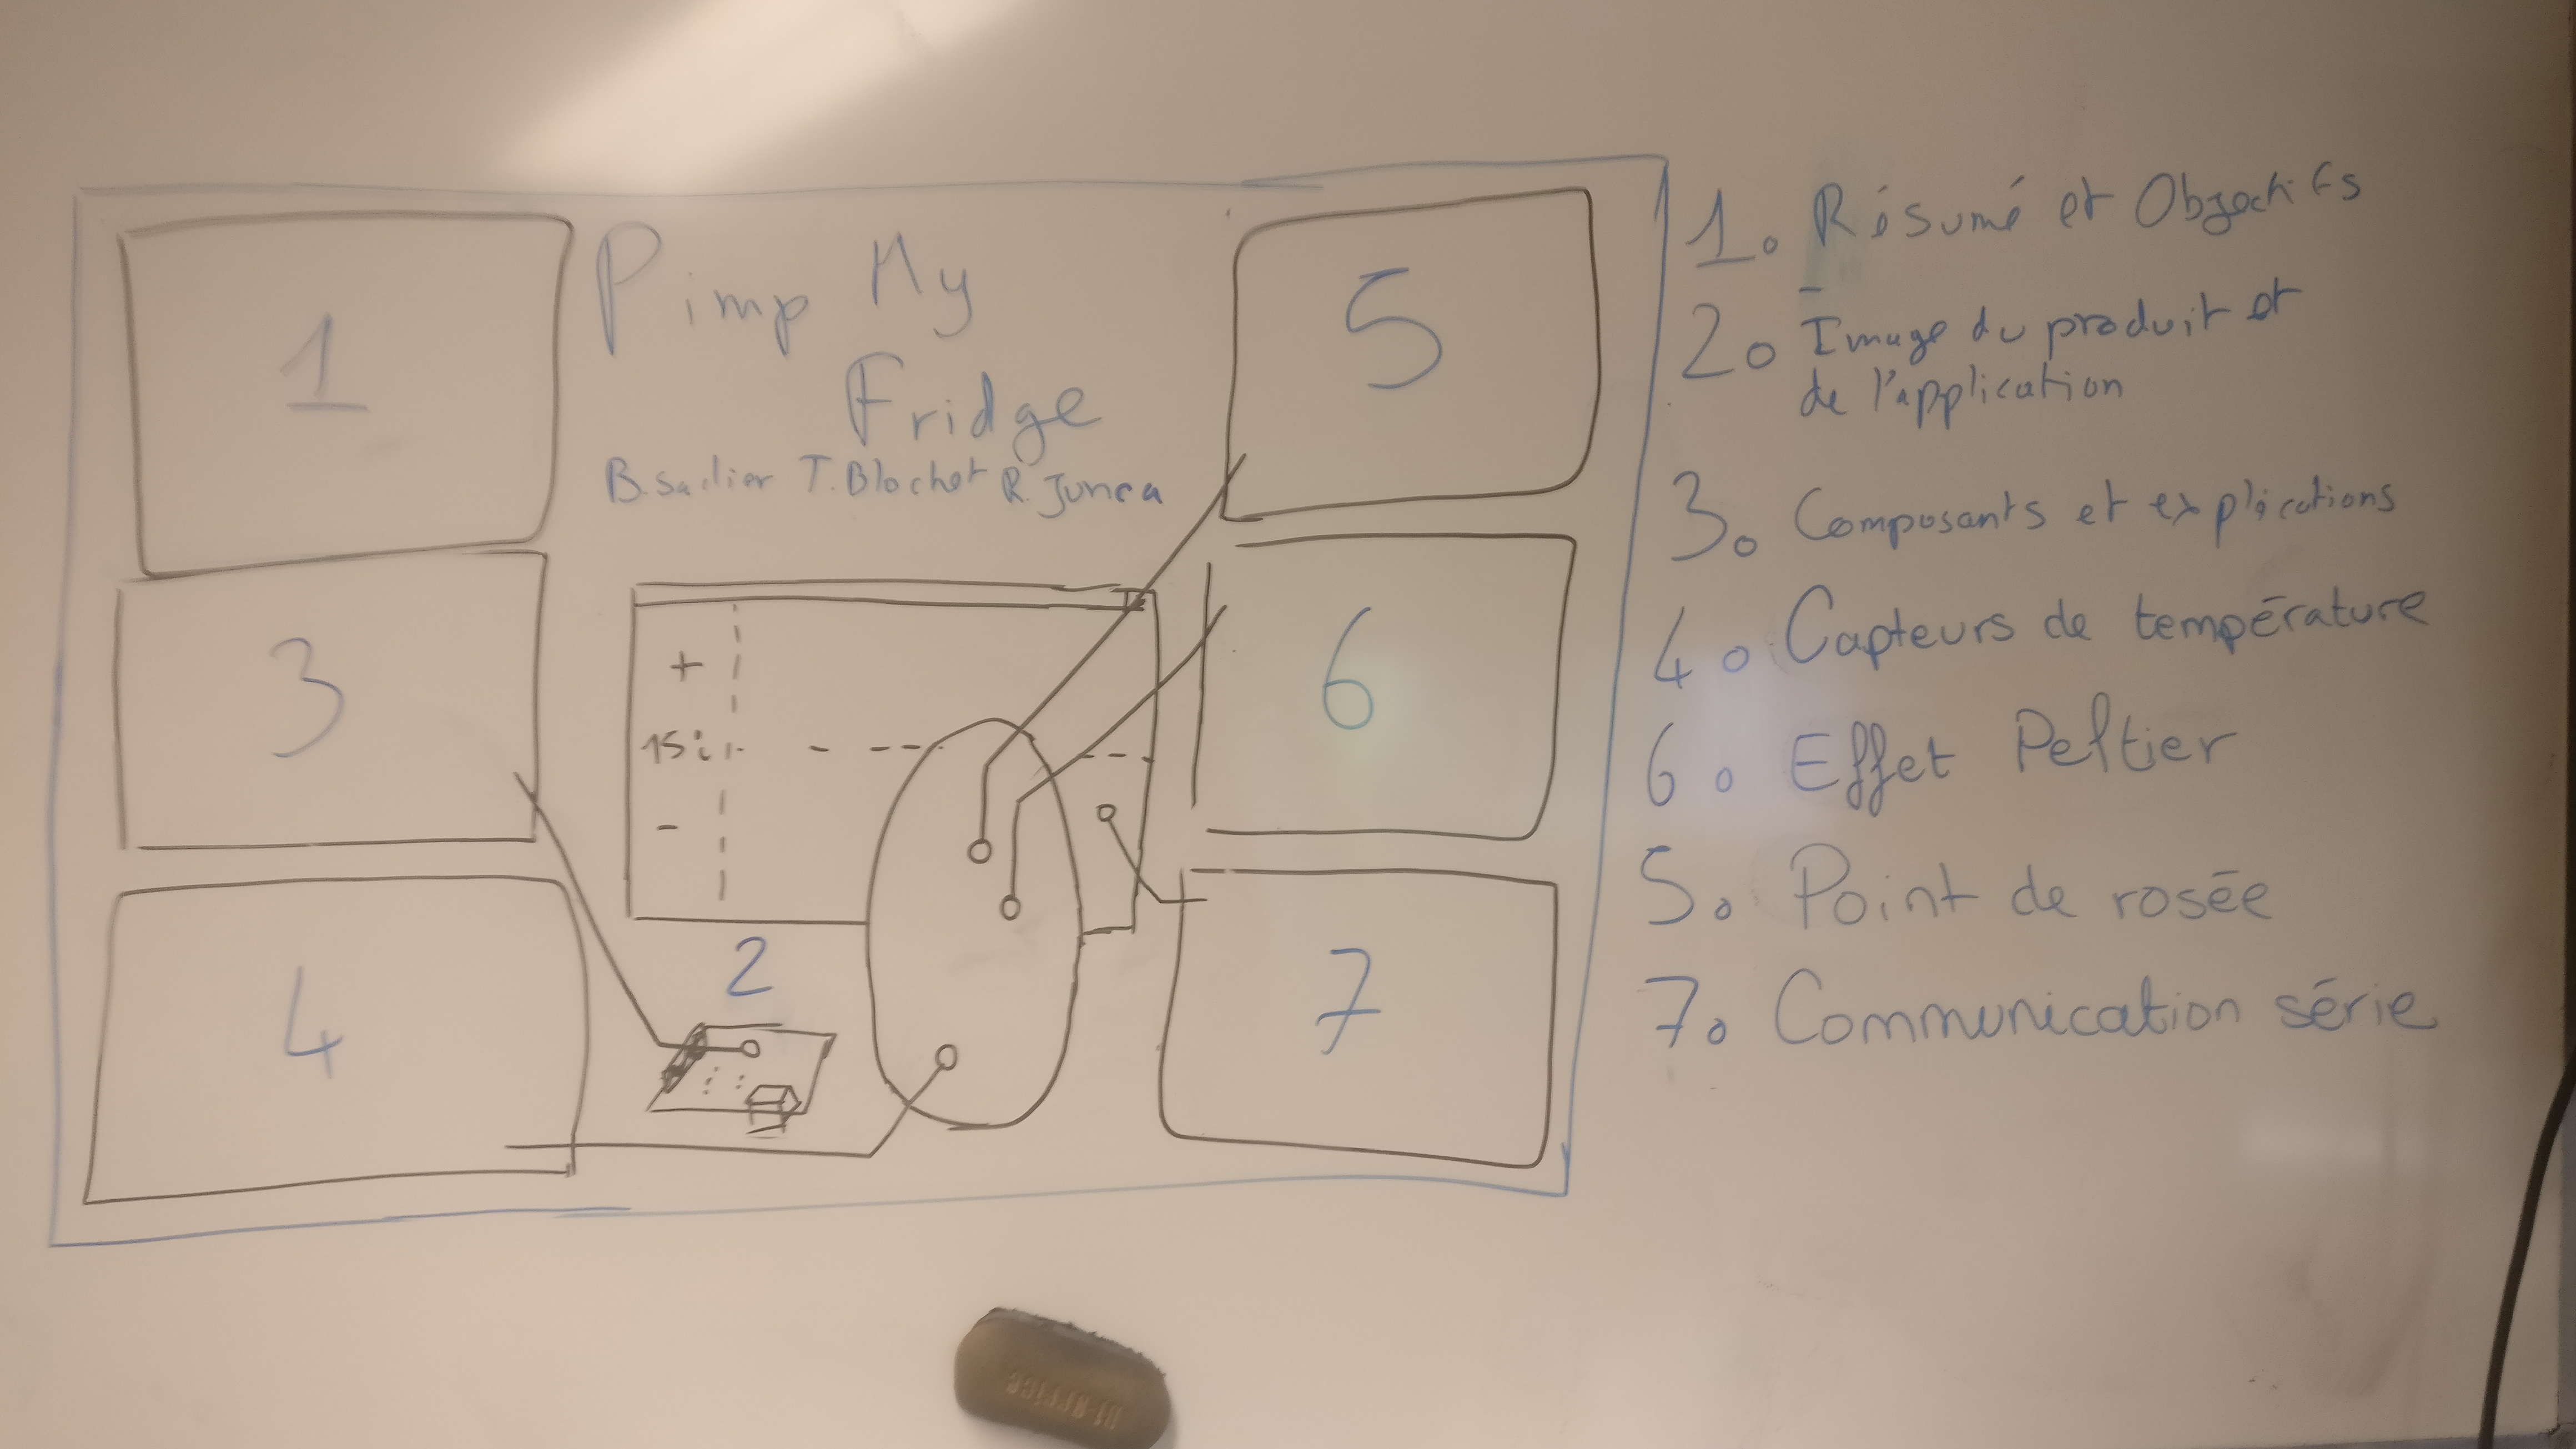 1
Pimp My
Fridge
B. Sadier T. Blochet R. Junca
3
+
15
-
2
4
5
6
7
1. Résumé et Objectifs
2. Image du produit et
de l'application
3. Composants et explications
4. Capteurs de température
6. Effet Peltier
5. Point de rosée
7. Communication série